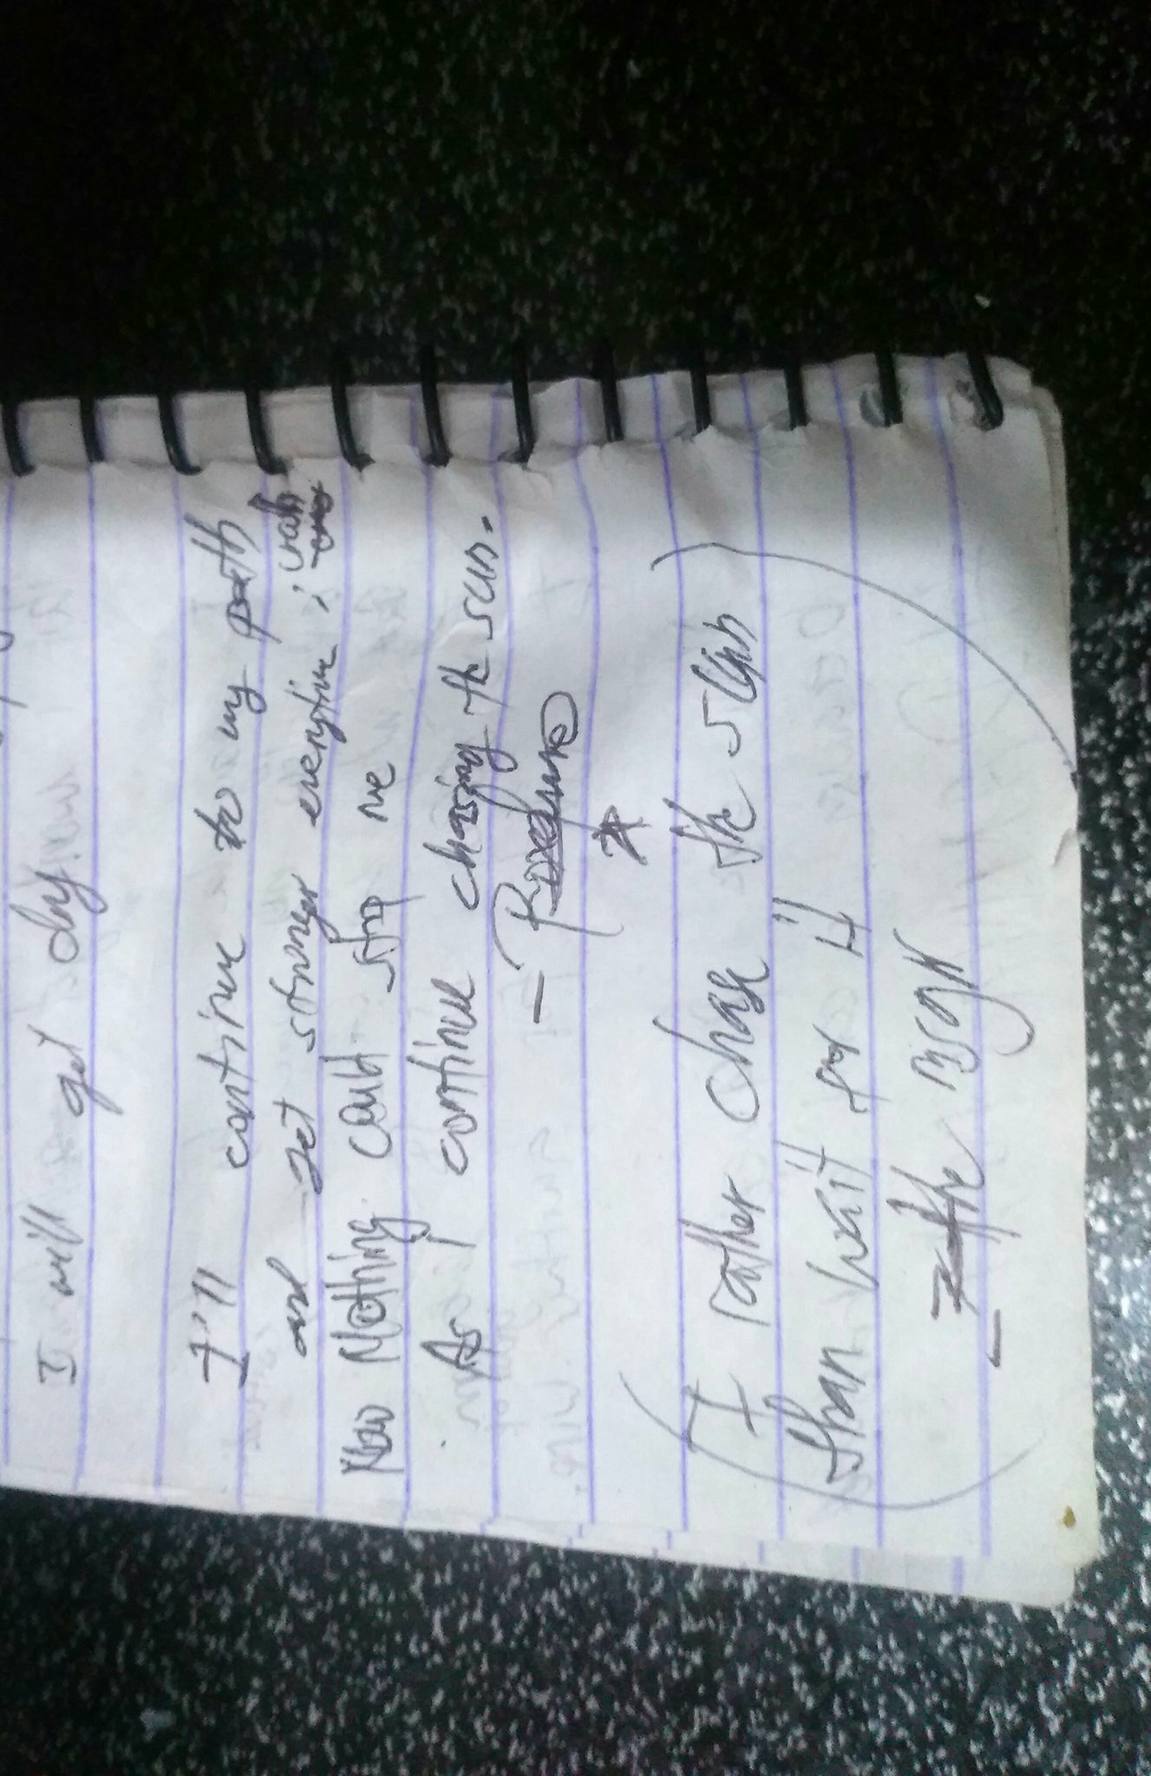 I will get dry
I'll continue to my path
and get stronger everytime i
Now Nothing could stop me
As I continue chasing the sun.
I rather chase the sun
than wait for it